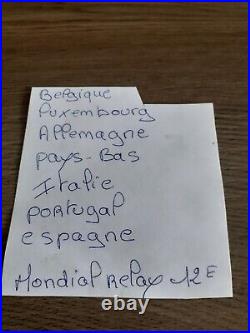 Belgique
Luxembourg
Allemagne
pays-Bas
Italie
portugal
espagne
Mondial Relay 12E